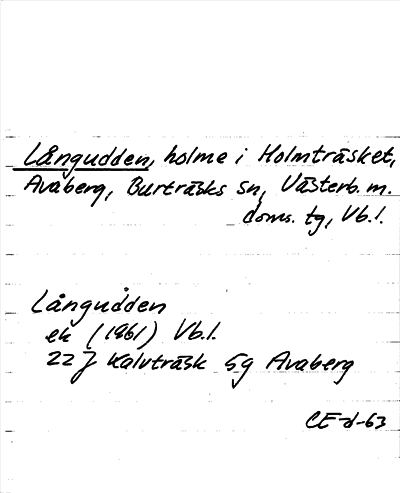 Långudden, holme i Holmträsket,
Avaberg, Burträsks sn, Västerb. m.
doms. tg, Vb. l.
Långudden
ek (1961) Vb. l.
22 J Kalvträsk 5g Avaberg
CE-d-63